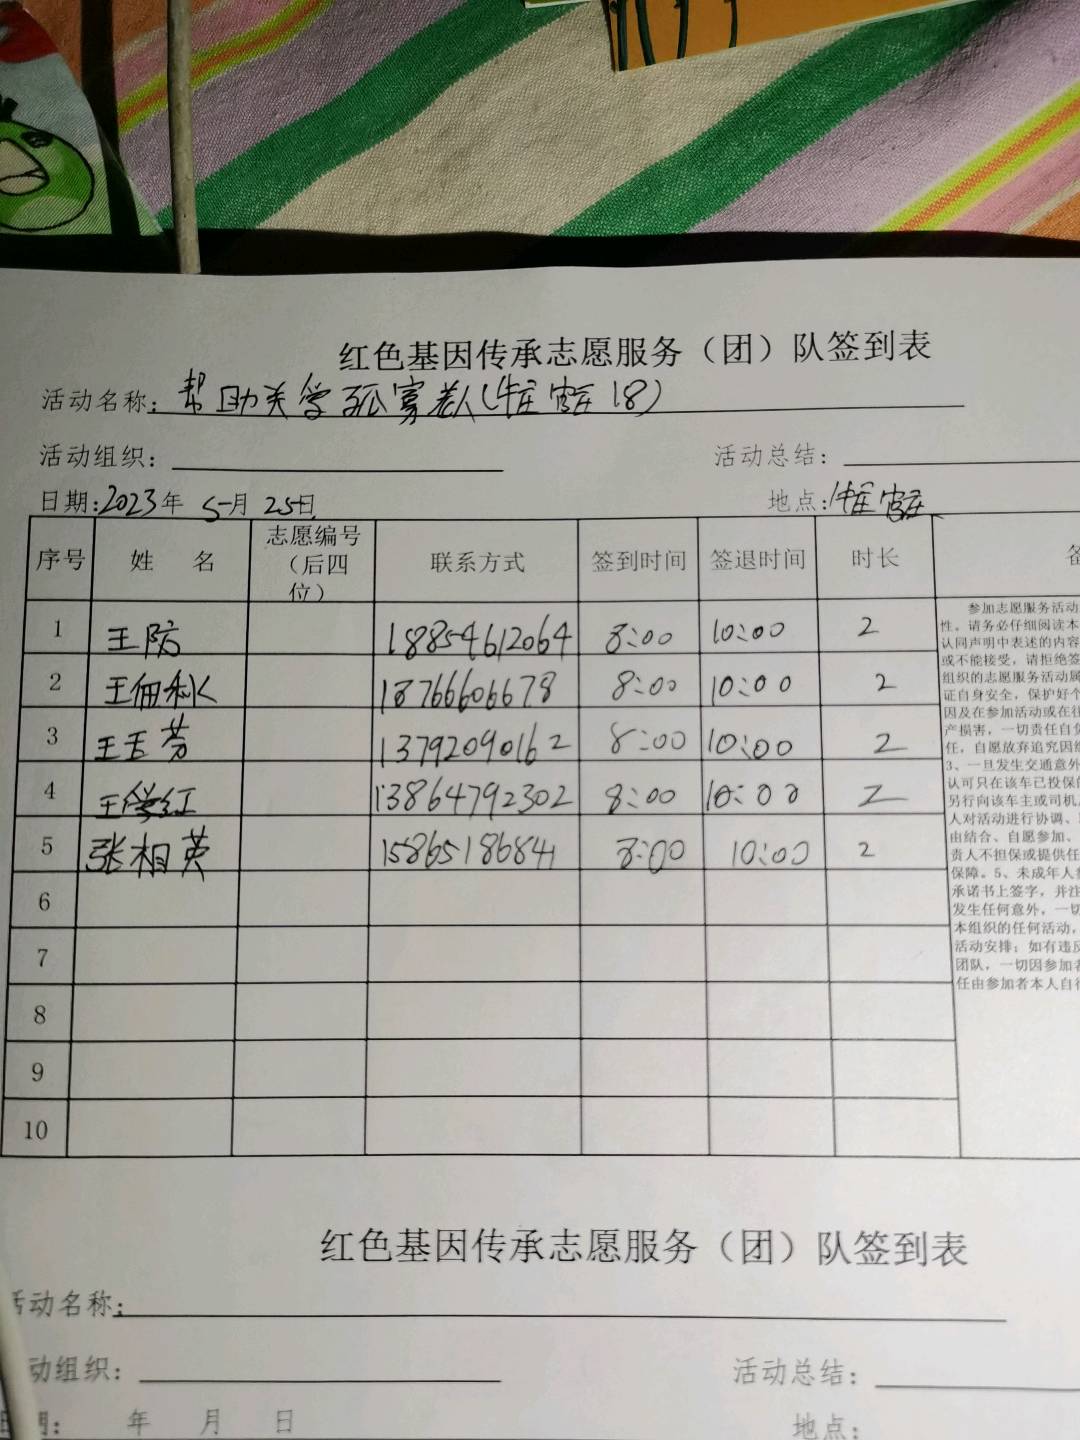 红色基因传承志愿服务（团）队签到表
活动名称：帮助关学孤寡老人(崔官庄18)
活动组织：
活动总结：
日期：2023年 5月 25日
地点：崔官庄
序号 姓 名 志愿编号（后四位） 联系方式 签到时间 签退时间 时长
1 王防 18854612064 8:00 10:00 2
2 王佃秋 13766606678 8:00 10:00 2
3 王玉芳 13792090162 8:00 10:00 2
4 王学红 13864792302 8:00 10:00 2
5 张相英 15865186841 8:00 10:00 2
6
7
8
9
10
参加志愿服务活动
性，请务必仔细阅读本
认同声明中表述的内容
或不能接受，请拒绝签
组织的志愿服务活动属
证自身安全，保护好个
因及在参加活动或在往
产损害，一切责任自负
任，自愿放弃追究因组
3、一旦发生交通意外
认可只在该车已投保的
另行向该车主或司机
人对活动进行协调、
由结合、自愿参加、
责人不担保或提供任
保障。5、未成年人参
承诺书上签字，并注
发生任何意外，一切
本组织的任何活动，
活动安排；如有违反
团队，一切因参加者
任由参加者本人自行
红色基因传承志愿服务（团）队签到表
活动名称：
动组织：
活动总结：
日期： 年 月 日
地点：